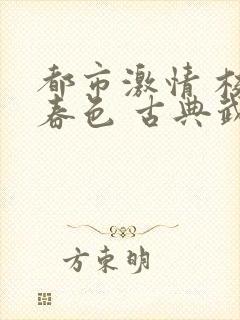 都市激情 校
春色 古典武
方东明